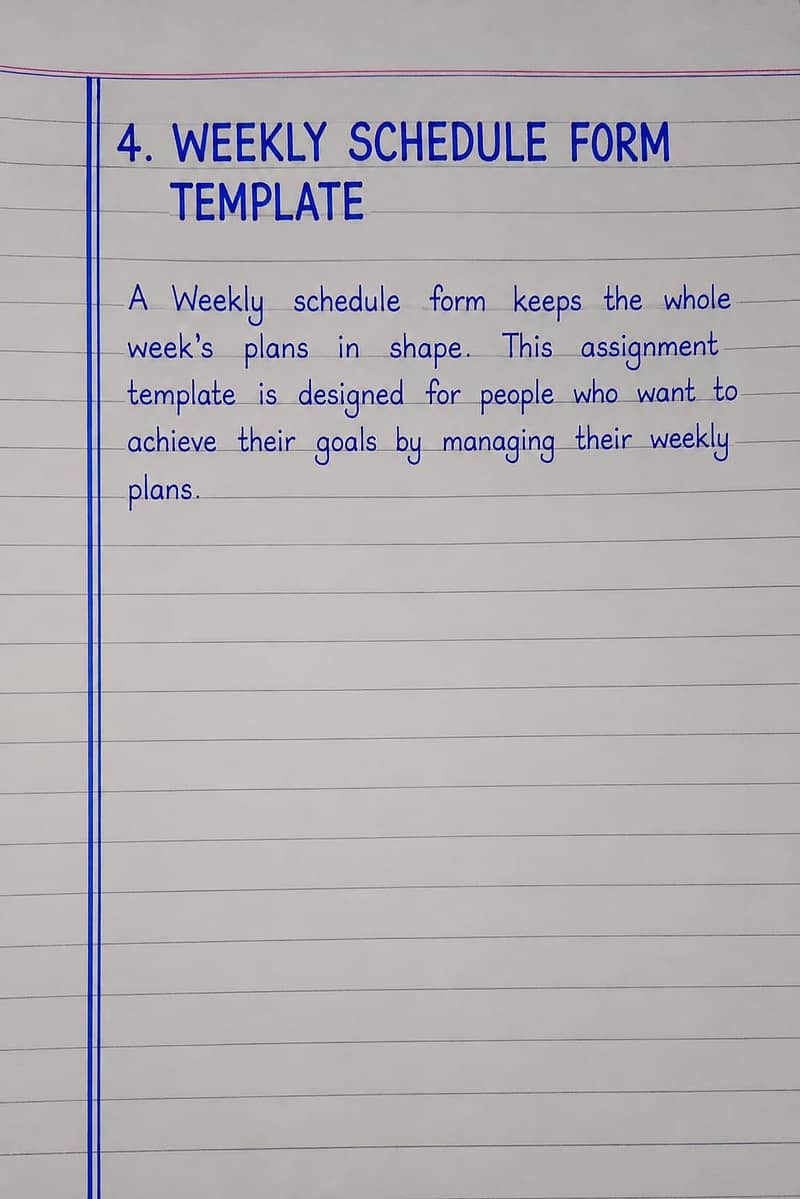 4. WEEKLY SCHEDULE FORM
TEMPLATE
A Weekly schedule form keeps the whole
week's plans in shape. This assignment
template is designed for people who want to
achieve their goals by managing their weekly
plans.